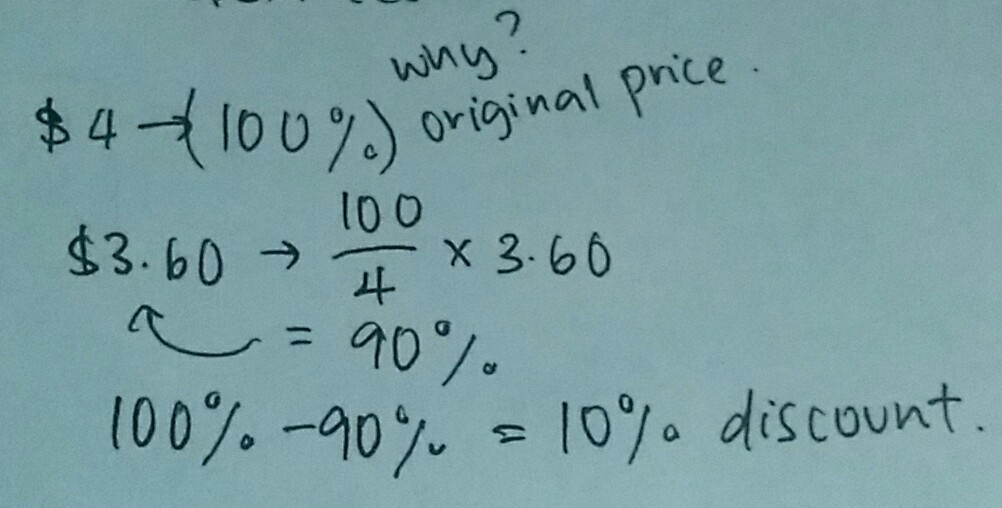 why?
$4 → (100%) original price.
$3.60 → 100/4 × 3.60
= 90%
100% - 90% = 10% discount.